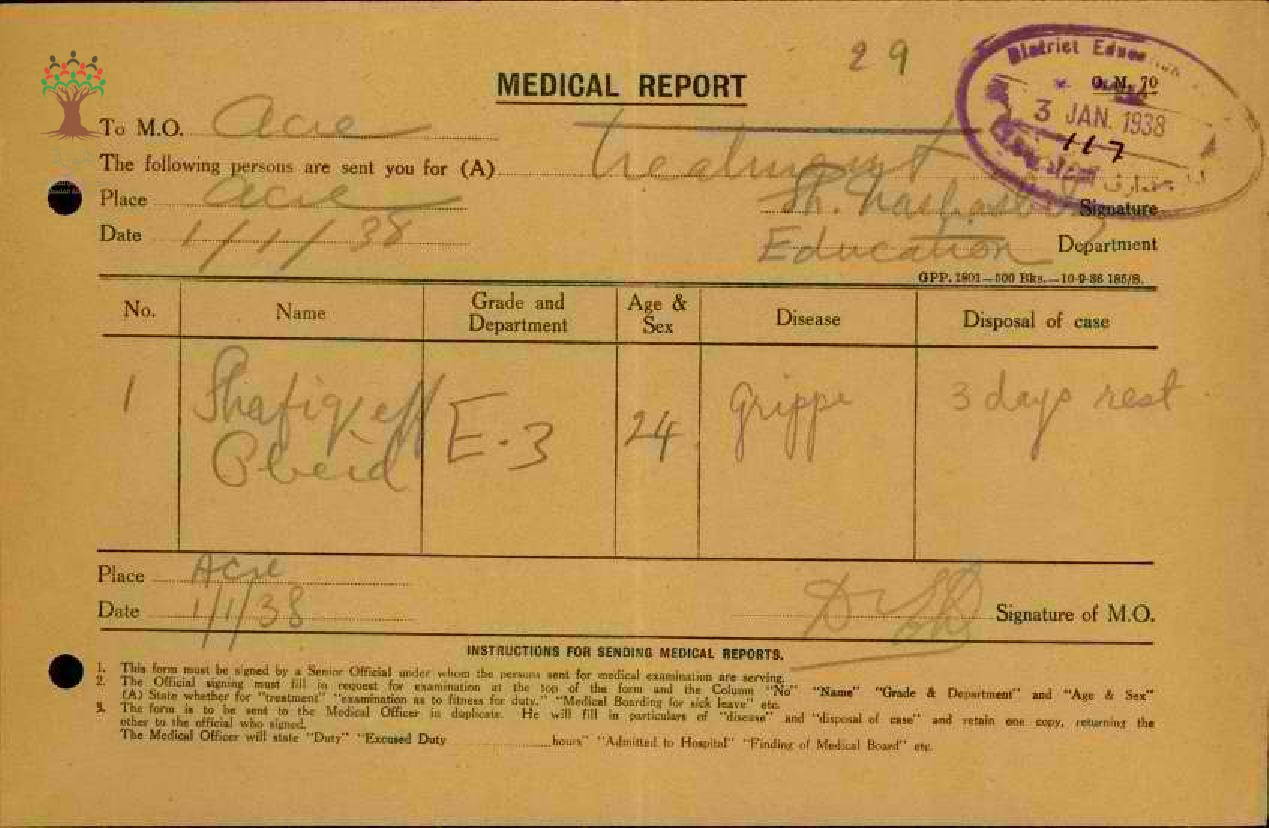 29
District Educ
G.M. 70
3 JAN. 1938
117
MEDICAL REPORT
To M.O. Acre
The following persons are sent you for (A) treatment
Place Acre
Signature
Date 1/1/38
Education Department
GPP. 1801—500 Bks.—10-9-36 185/S.
No. Name Grade and Department Age & Sex Disease Disposal of case
1 Shafiq eff Obeid E-3 24 grippe 3 days rest
Place Acre
Date 1/1/38
Signature of M.O.
INSTRUCTIONS FOR SENDING MEDICAL REPORTS.
1. This form must be signed by a Senior Official under whom the persons sent for medical examination are serving.
2. The Official signing must fill in request for examination at the top of the form and the Column "No" "Name" "Grade & Department" and "Age & Sex"
(A) State whether for "treatment" "examination as to fitness for duty." "Medical Boarding for sick leave" etc.
3. The form is to be sent to the Medical Officer in duplicate. He will fill in particulars of "disease" and "disposal of case" and retain one copy, returning the
other to the official who signed.
The Medical Officer will state "Duty" "Excused Duty ............hours" "Admitted to Hospital" "Finding of Medical Board" etc.